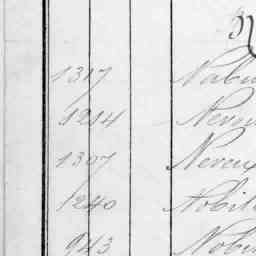 N
1317 Nabu
1214 Nerou
1307 Nereux
1240 Nobil
943 Nobi